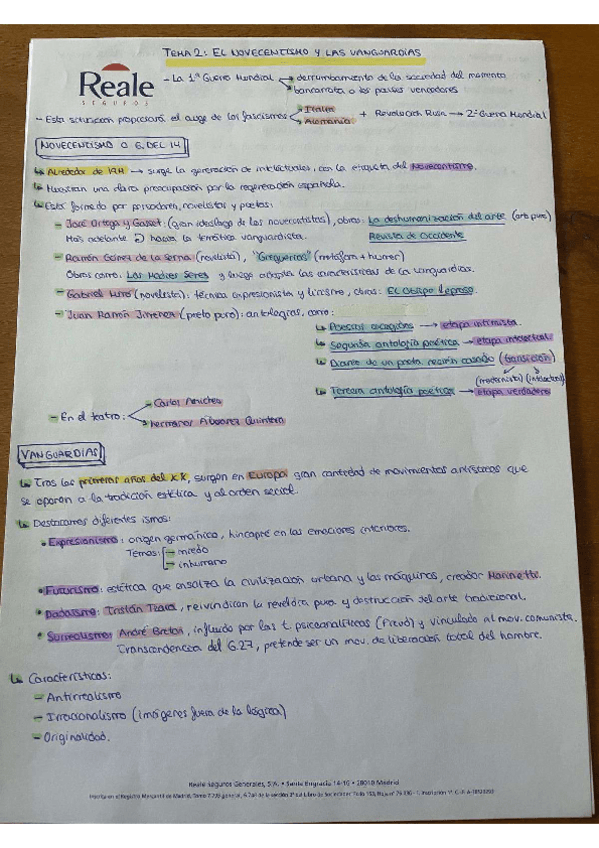 TEMA 2: EL NOVECENTISMO Y LAS VANGUARDIAS
Reale
SEGUROS
- La 1ª Guerra Mundial → derrumbamiento de la sociedad del momento
→ bancarrota a los países vencedores
- Esta situación propiciará el auge de los fascismos → Italia
→ Alemania + Revolución Rusa → 2ª Guerra Mundial
NOVECENTISMO O G. DEL 14
↳ Alrededor de 1914 → surge la generación de intelectuales, con la etiqueta del Novecentismo.
↳ Muestran una clara preocupación por la regeneración española.
↳ Está formado por pensadores, novelistas y poetas:
- José Ortega y Gasset: (gran ideólogo de los novecentistas), obras: La deshumanización del arte (arte puro)
Más adelante hacia la temática vanguardista. Revista de occidente
- Ramón Gómez de la Serna (novelista), "Greguerías" (metáfora + humor)
Obras como: Los Medios Seres y luego adopta las características de la vanguardia.
- Gabriel Miró (novelista): técnica expresionista y lirismo, obras: El Obispo leproso.
- Juan Ramón Jiménez (poeta puro): antologías, como:
↳ Poesías escogidas → etapa intimista.
↳ Segunda antología poética → etapa intelectual.
↳ Diario de un poeta recién casado (transición)
(modernista) (intelectual)
↳ Tercera antología poética → etapa verdadera
- En el teatro: → Carlos Arniches
→ hermanos Álvarez Quintero
VANGUARDIAS
↳ Tras los primeros años del XX, surgen en Europa gran cantidad de movimientos artísticos que
se oponen a la tradición estética y al orden social.
↳ Destacamos diferentes ismos:
• Expresionismo: origen germánico, hincapié en las emociones interiores.
Temas: → miedo
→ inhumano
• Futurismo: estética que ensalza la civilización urbana y las máquinas, creador Marinetti.
• Dadaísmo: Tristán Tzara, reivindican la rebeldía pura y destrucción del arte tradicional.
• Surrealismo: André Breton, influido por las t. psicoanalíticas (Freud) y vinculado al mov. comunista.
Transcendencia del G.27, pretende ser un mov. de liberación total del hombre.
↳ Características:
- Antirrealismo
- Irracionalismo (imágenes fuera de la lógica)
- Originalidad.
Reale Seguros Generales, S.A. • Santa Engracia 14-16 • 28010 Madrid